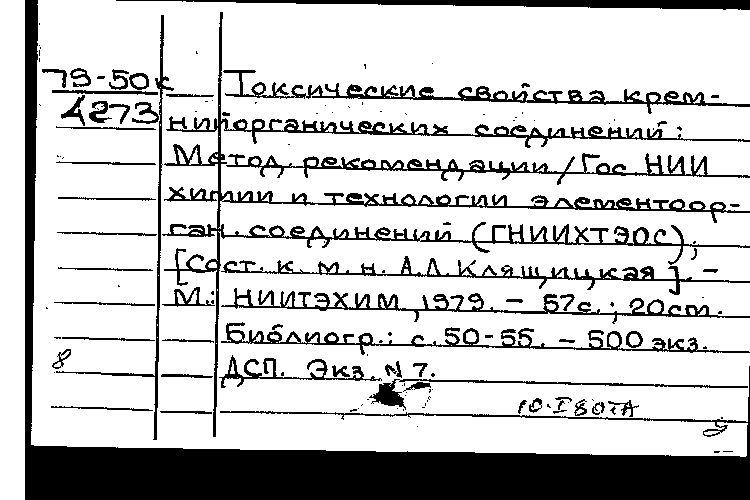 79-50к
4273
Токсические свойства крем-
нийорганических соединений:
Метод. рекомендации/Гос НИИ
химии и технологии элементоор-
ган. соединений (ГНИИХТЭОС);
[Сост. к. м. н. А.Л. Клящицкая]. -
М.: НИИТЭХИМ, 1979. - 57с.; 20см.
Библиогр.: с. 50-55. - 500 экз.
ДСП. Экз. N 7.
8